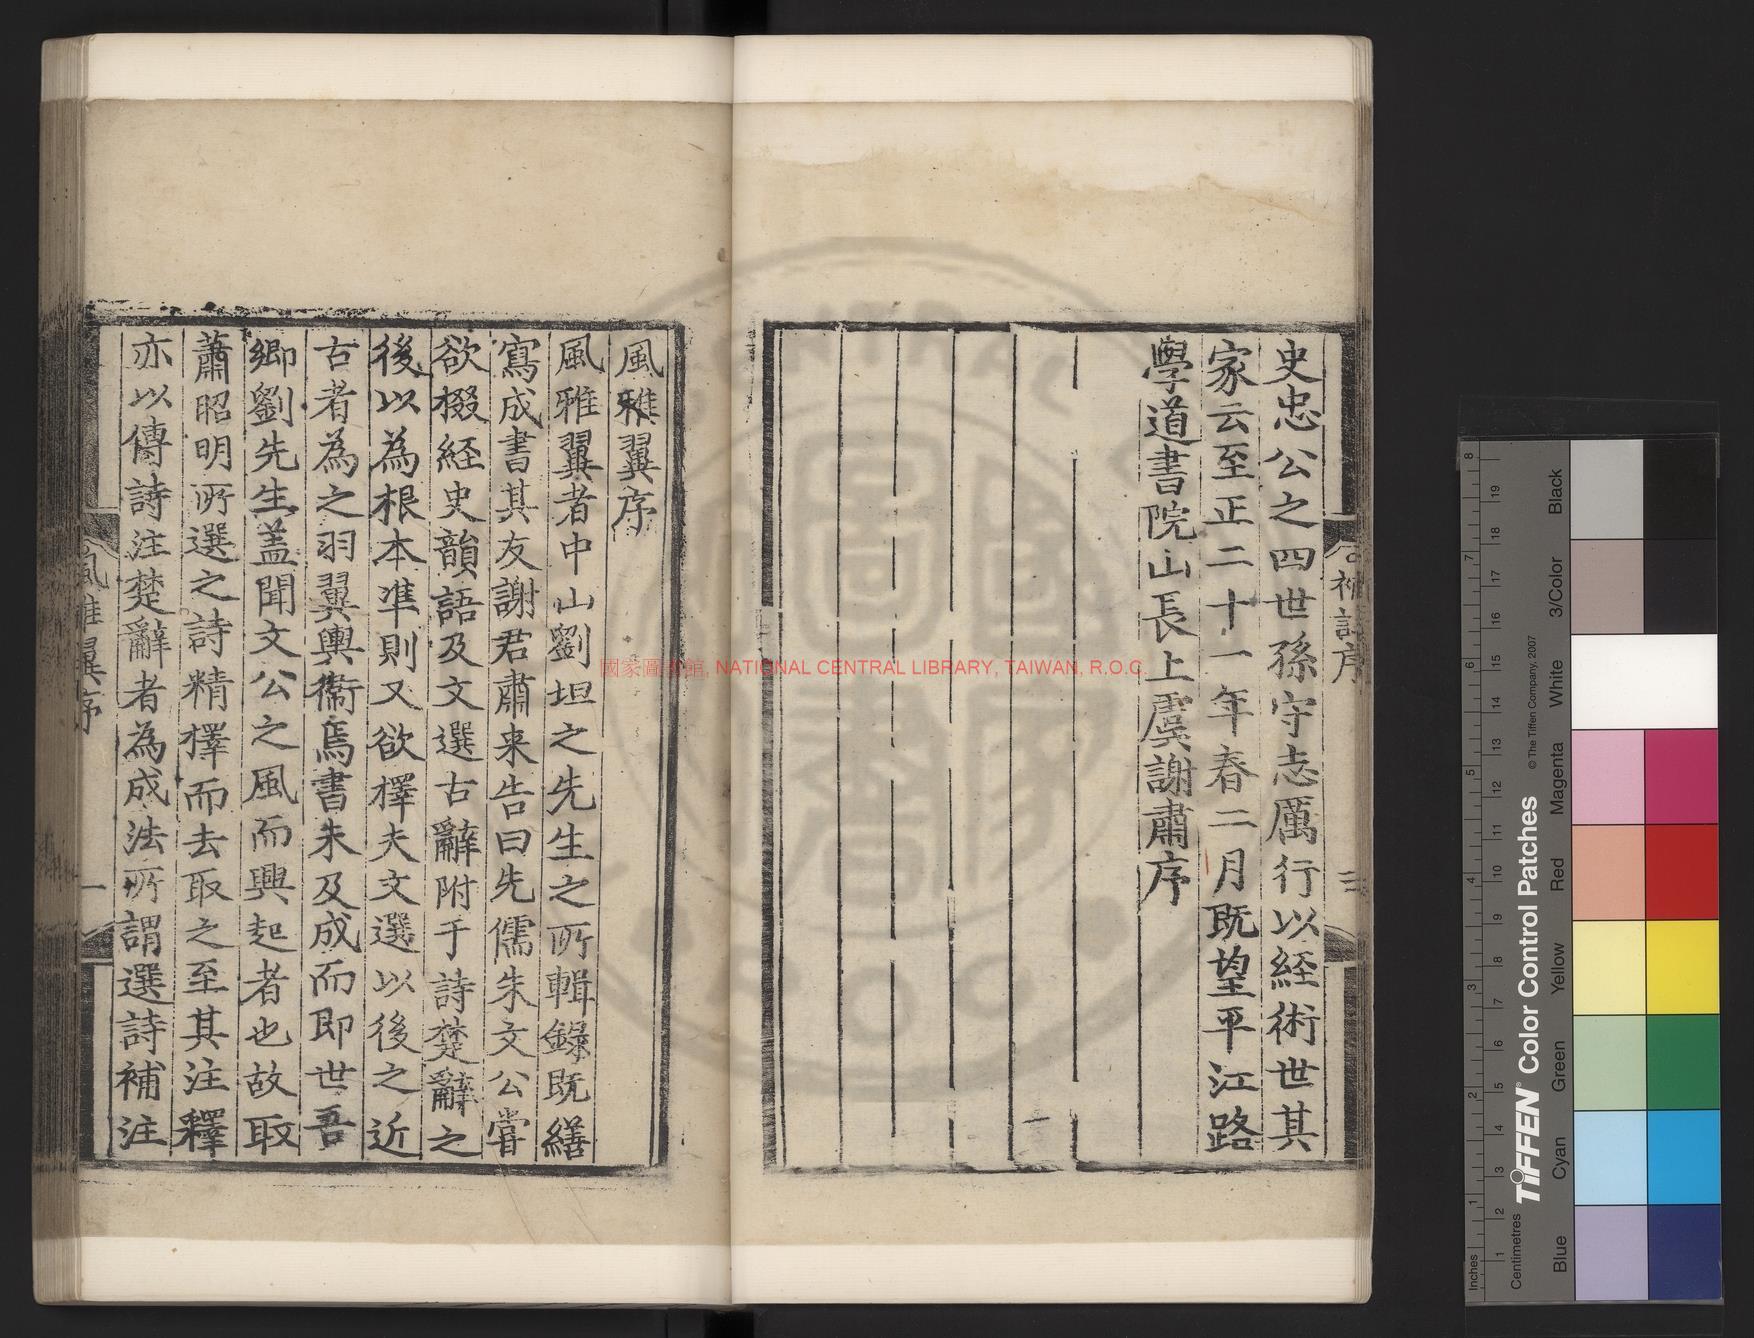 史忠公之四世孫守志厲行以経術世其
家云至正二十一年春二月既望平江路
學道書院山長上虞謝肅序
補註序
三
風雅翼序
風雅翼者中山劉坦之先生之所輯錄既繕
寫成書其友謝君肅来告曰先儒朱文公嘗
欲掇経史韻語及文選古辭附于詩楚辭之
後以為根本準則又欲擇夫文選以後之近
古者為之羽翼輿衞焉書未及成而即世吾
鄉劉先生盖聞文公之風而興起者也故取
蕭昭明所選之詩精擇而去取之至其注釋
亦以傳詩注楚辭者為成法所謂選詩補注
風雅翼序
一
國家圖書館, NATIONAL CENTRAL LIBRARY, TAIWAN, R.O.C.
Inches
Centimetres
TIFFEN® Color Control Patches
© The Tiffen Company, 2007
Blue
Cyan
Green
Yellow
Red
Magenta
White
3/Color
Black